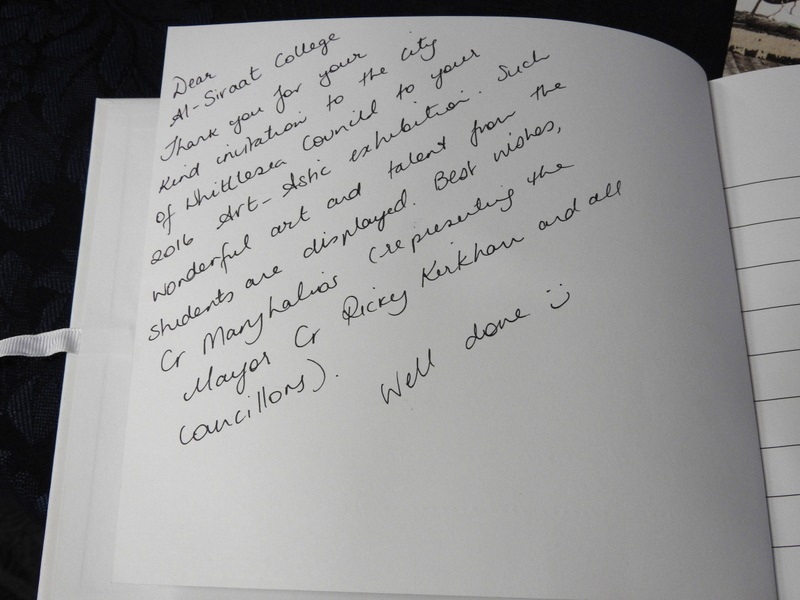 Dear
Al-Siraat College
Thank you for your
kind invitation to the city
of Whittlesea Council to your
2016 Art-Astic exhibition. Such
wonderful art and talent from the
students are displayed. Best wishes,
Cr Mary Lalios (representing the
Mayor Cr Ricky Kirkham and all
councillors).
Well done :)